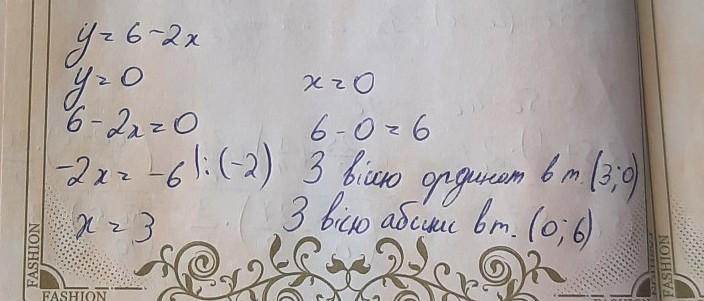 y = 6 - 2x
y = 0
x = 0
6 - 2x = 0
6 - 0 = 6
-2x = -6 | : (-2)
З вісю ординат в т. (3; 0)
x = 3
З вісю абсцис в т. (0; 6)
FASHION
FASHION
FASHION